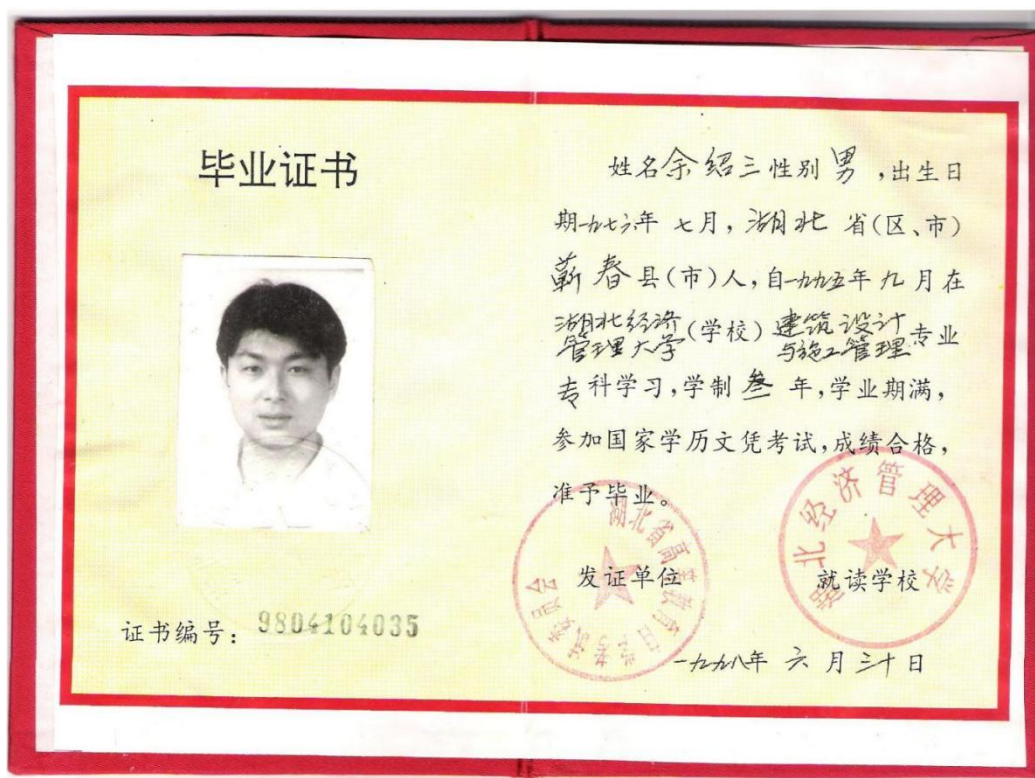 毕业证书
证书编号：9804104035
姓名余绍三性别男，出生日
期一九七六年七月，湖北省(区、市)
蕲春县(市)人，自一九九五年九月在
湖北经济管理大学(学校)建筑设计与施工管理专业
专科学习，学制叁年，学业期满，
参加国家学历文凭考试，成绩合格，
准予毕业。
发证单位 就读学校
湖北省高等教育自学考试委员会
湖北经济管理大学
一九九八年六月三十日